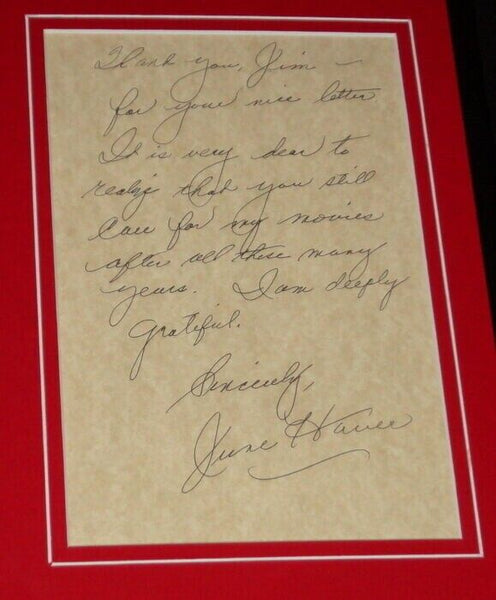 Thank you, Jim –
for your nice letter
It is very dear to
realize that you still
care for my movies
after all these many
years. I am deeply
grateful.
Sincerely,
June Haver